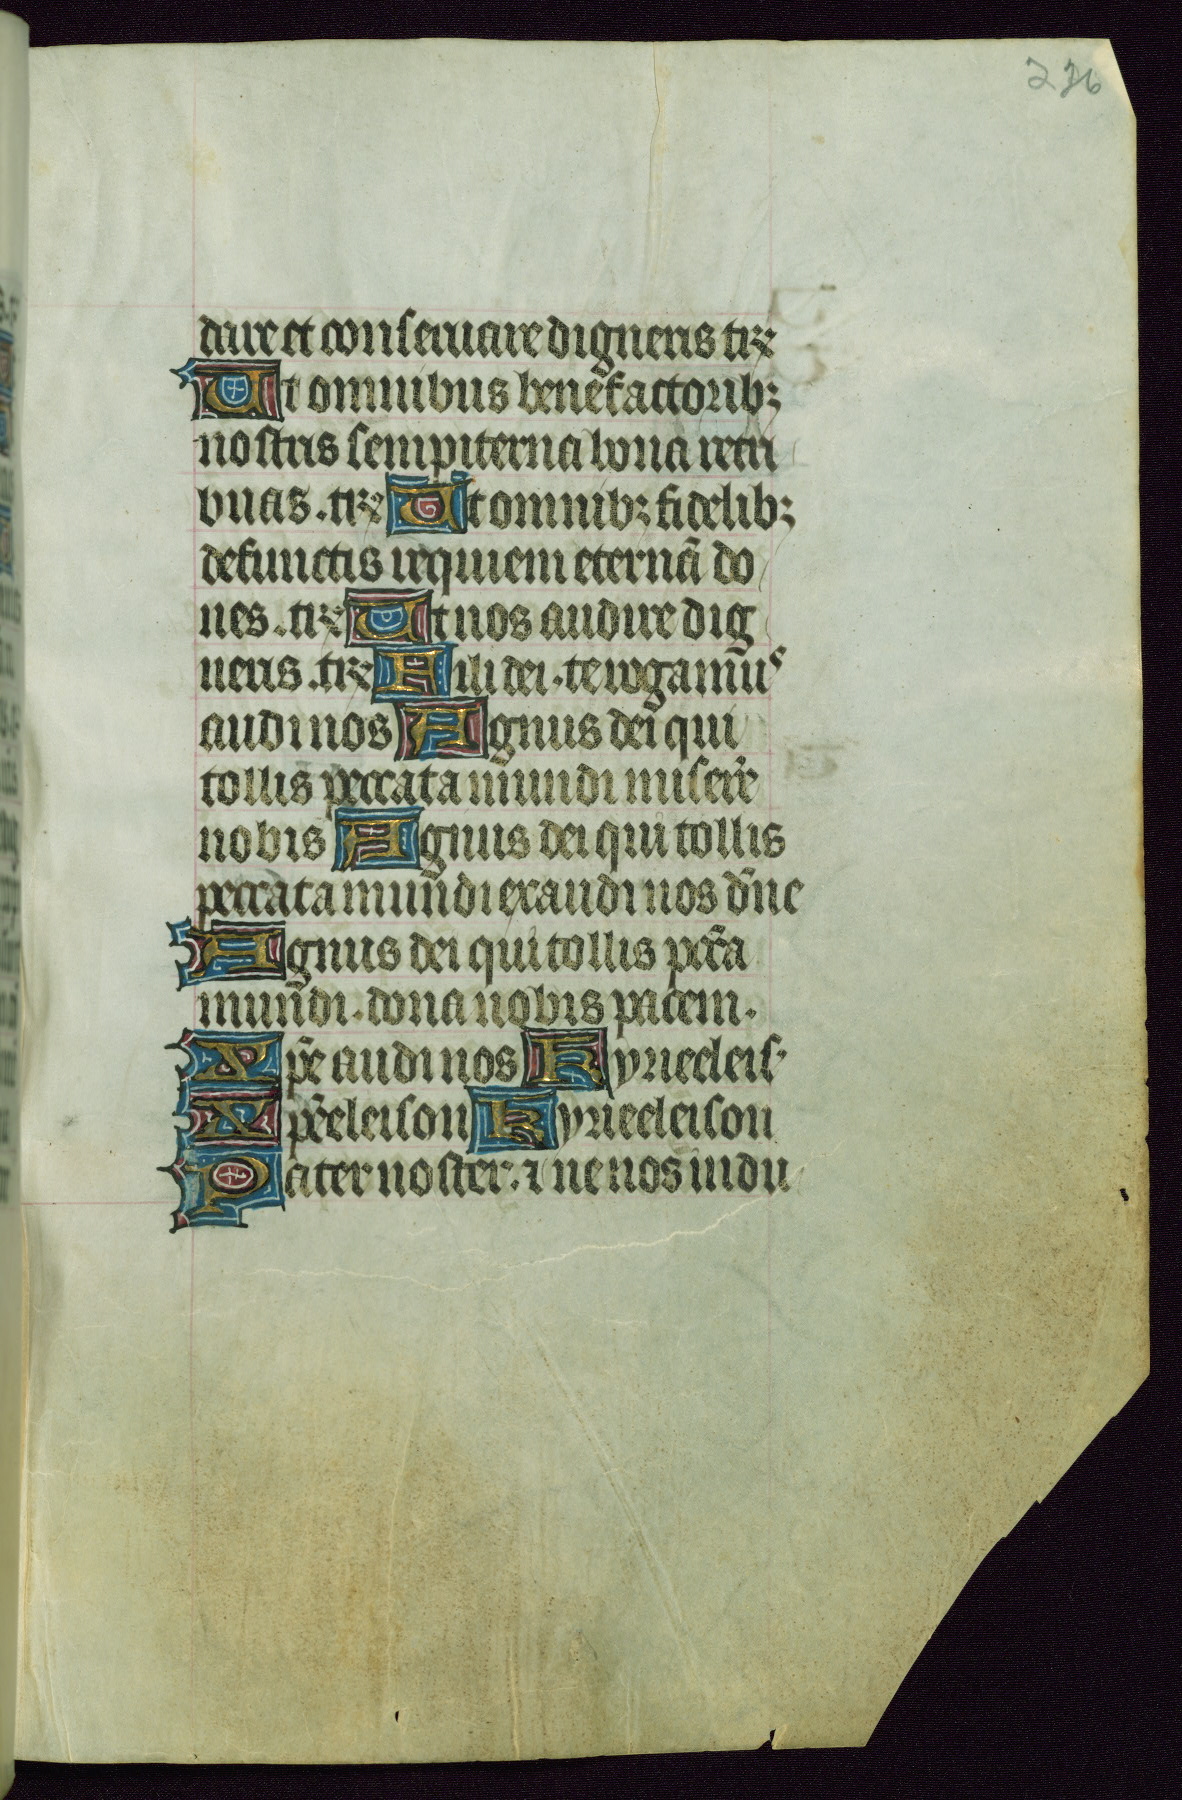 236
dare et conseruare digneris tꝛꝭ
Ut omnibus benefactorib;
nostris sempiterna bona retri
buas . tꝛꝭ Ut omnib; fidelib;
defunctis requiem eternā do
nes . tꝛꝭ Ut nos audire dig
neris . tꝛꝭ Fili dei . te rogamus
audi nos Agnus dei qui
tollis peccata mundi miserē
nobis Agnus dei qui tollis
peccata mundi exaudi nos dn̄e
Agnus dei qui tollis pcc̄a
mundi . dona nobis pacem .
Xpē audi nos Kyrieeleis
Xpēeleison Kyrieeleison
Pater noster . ⁊ ne nos indu